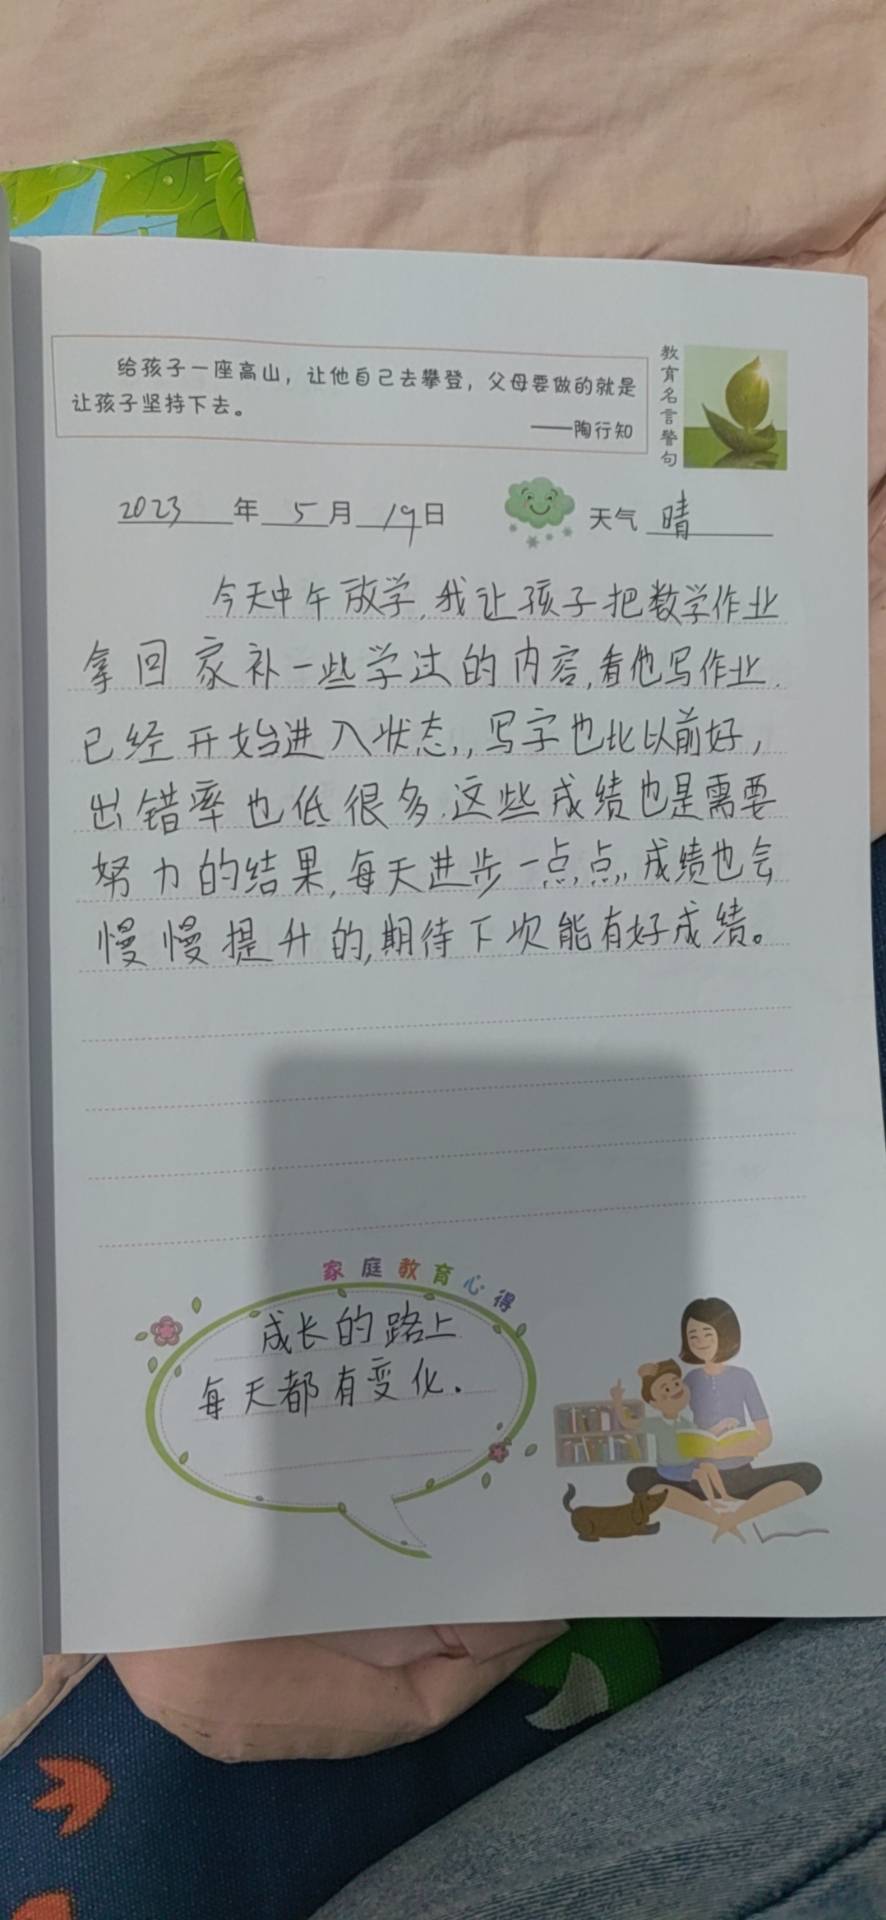 给孩子一座高山，让他自己去攀登，父母要做的就是
让孩子坚持下去。
——陶行知
教育名言警句
2023年5月19日 天气 晴
今天中午放学，我让孩子把数学作业
拿回家补一些学过的内容，看他写作业，
已经开始进入状态，，写字也比以前好，
出错率也低很多，这些成绩也是需要
努力的结果，每天进步一点点，，成绩也会
慢慢提升的，期待下次能有好成绩。
家庭教育心得
成长的路上
每天都有变化．